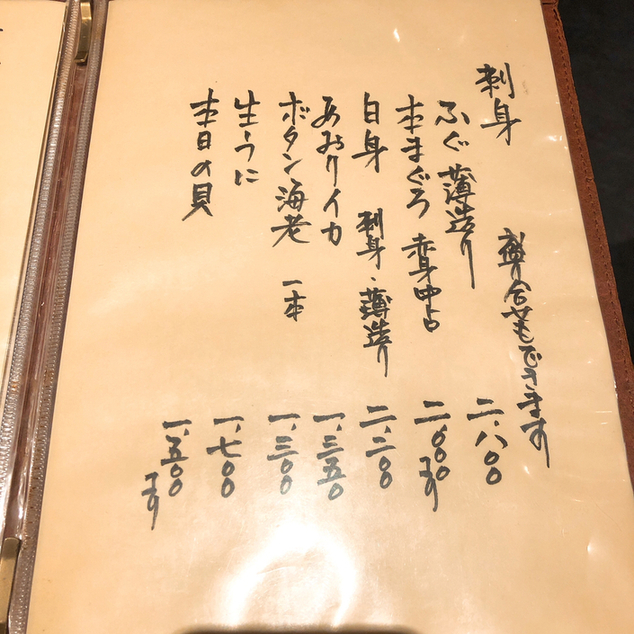 刺身
盛り合せもできます
ふぐ 薄造り 二、八〇〇
本まぐろ 赤身中とろ 二、〇〇〇より
白身 刺身・薄造り 二、二〇〇
あおりイカ 一、三五〇
ボタン海老 一本 一、三〇〇
生うに 一、七〇〇
本日の貝 一、五〇〇より